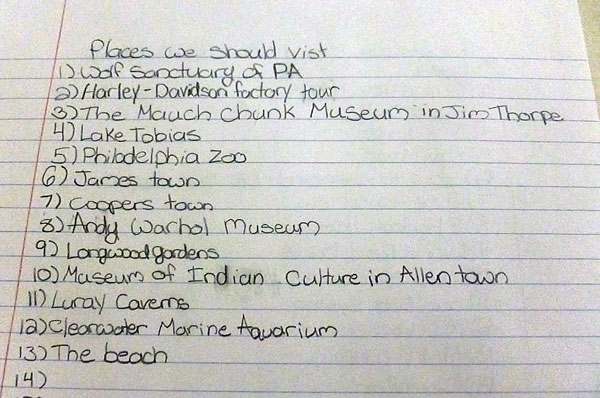 Places we should vist
1) Wolf Sanctuary of PA
2) Harley-Davidson factory tour
3) The Mauch Chunk Museum in Jim Thorpe
4) Lake Tobias
5) Philadelphia Zoo
6) James town
7) Coopers town
8) Andy Warhol Museum
9) Longwood gardens
10) Museum of Indian Culture in Allentown
11) Luray Caverns
12) Clearwater Marine Aquarium
13) The beach
14)